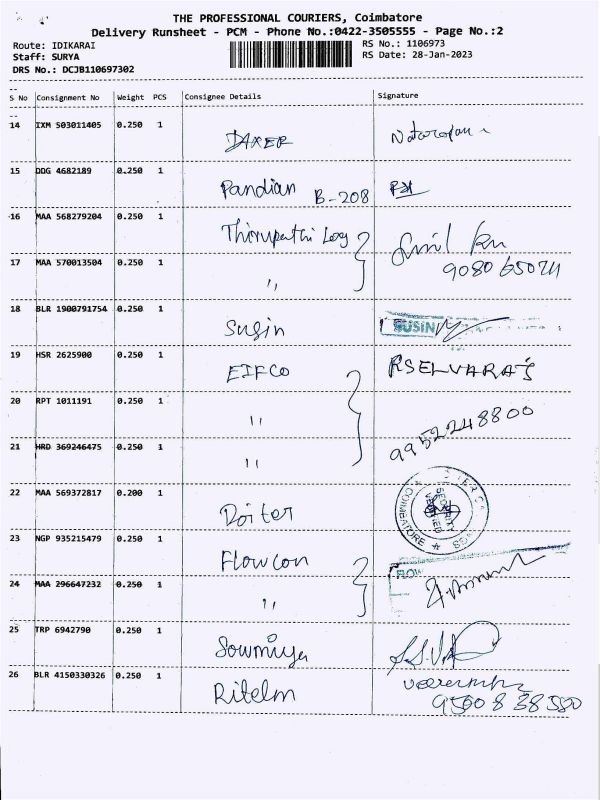 THE PROFESSIONAL COURIERS, Coimbatore
Delivery Runsheet - PCM - Phone No.:0422-3505555 - Page No.:2
Route: IDIKARAI RS No.: 1106973
Staff: SURYA RS Date: 28-Jan-2023
DRS No.: DCJB110697302
S No Consignment No Weight PCS Consignee Details Signature
14 IXM 503011405 0.250 1 DAXER
15 DDG 4682189 0.250 1 Pandian B-208
16 MAA 568279204 0.250 1 Thirupathi Log
17 MAA 570013504 0.250 1 ,,
18 BLR 1900791754 0.250 1 Susin SUSIN
19 HSR 2625900 0.250 1 EIFCO RSELVARAJ
20 RPT 1011191 0.250 1 ,, 9952248800
21 HRD 369246475 0.250 1 ,,
22 MAA 569372817 0.200 1 SECURITY VERIFIED COIMBATORE
23 NGP 935215479 0.250 1 Flowcon FLOW
24 MAA 296647232 0.250 1 ,,
25 TRP 6942790 0.250 1 Sowmiya
26 BLR 4150330326 0.250 1 Ritelm